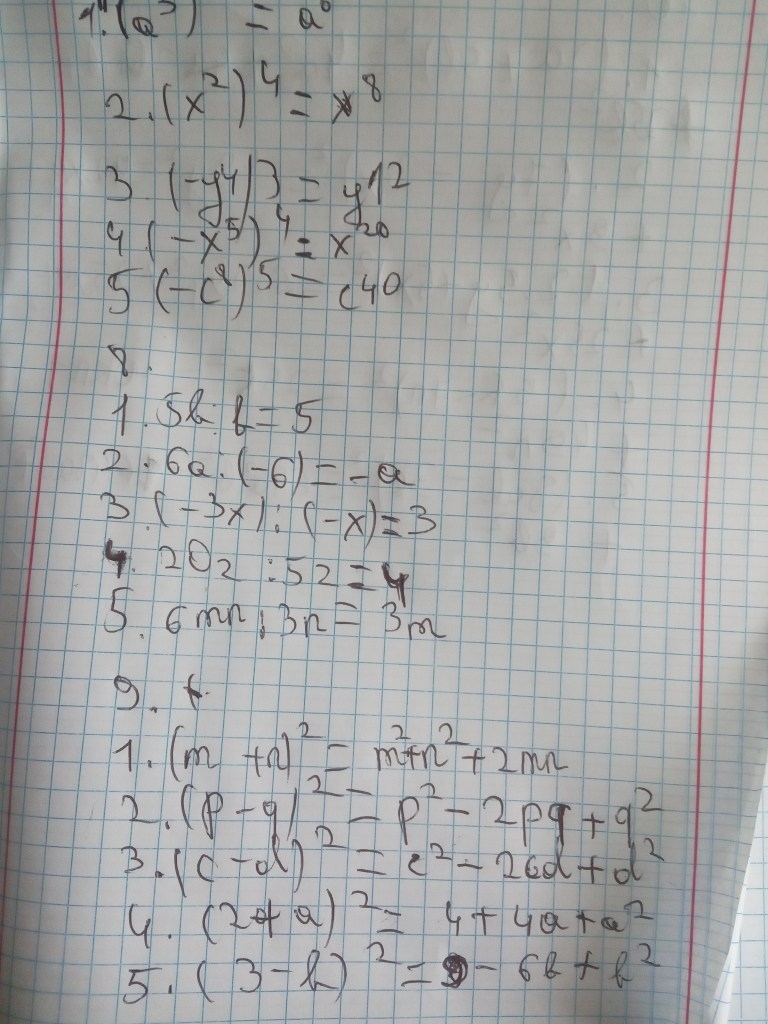 1. (a³) = a⁶
2. (x²)⁴ = x⁸
3 (-y⁴)3 = y12
4 (-x⁵)⁴ = x²⁰
5 (-c⁸)⁵ = c40
8.
1. 5b : b = 5
2. 6a : (-6) = -a
3. (-3x) : (-x) = 3
4. 20z : 5z = 4
5. 6mn : 3n = 3m
9.
1. (m + n)² = m²+n²+2mn
2. (p - q)² = p² - 2pq + q²
3. (c - d)² = c² - 2cd + d²
4. (2+a)² = 4 + 4a + a²
5. (3 - b)² = 9 - 6b + b²